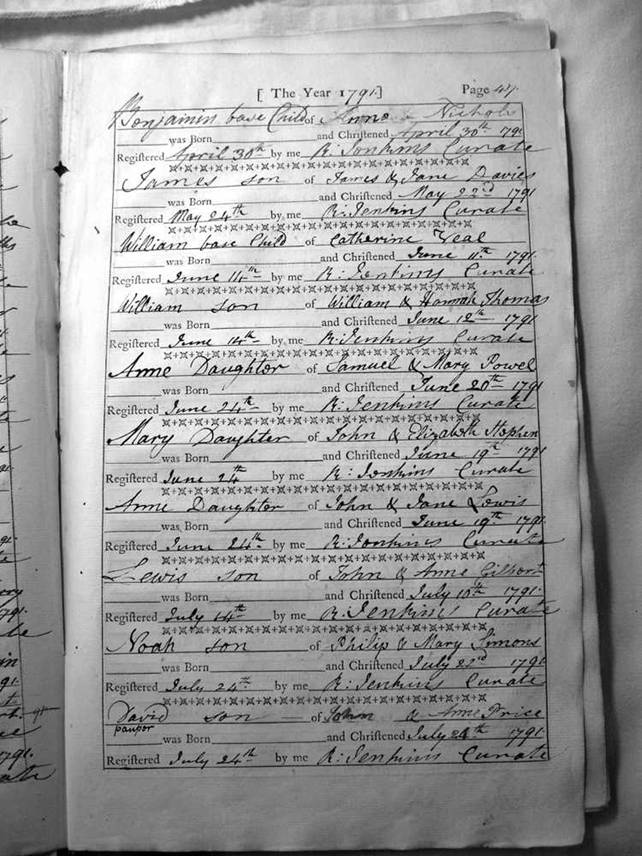 [ The Year 1791.] Page 44.
Benjamin base Child of Anne Nichols
was Born and Christened April 30th 1791
Registered April 30th by me R. Jenkins Curate
James son of James & Jane Davies
was Born and Christened May 22d 1791
Registered May 24th by me R: Jenkins Curate
William base Child of Catherine Veal
was Born and Christened June 11th 1791
Registered June 14th by me R: Jenkins Curate
William son of William & Hannah Thomas
was Born and Christened June 12th 1791
Registered June 14th by me R: Jenkins Curate
Anne Daughter of Samuel & Mary Powel
was Born and Christened June 20th 1791
Registered June 24th by me R: Jenkins Curate
Mary Daughter of John & Elizabeth
was Born and Christened June 19th 1791
Registered June 24th by me R: Jenkins Curate
Anne Daughter of John & Jane Lewis
was Born and Christened June 19th 1791
Registered June 24th by me R: Jenkins Curate
Lewis son of John & Anne Gilbert
was Born and Christened July 10th 1791.
Registered July 14th by me R: Jenkins Curate
Noah son of Philip & Mary Simons
was Born and Christened July 22d 1791
Registered July 24th by me R: Jenkins Curate
David son of John & Anne Price
pauper
was Born and Christened July 24th 1791.
Registered July 24th by me R: Jenkins Curate